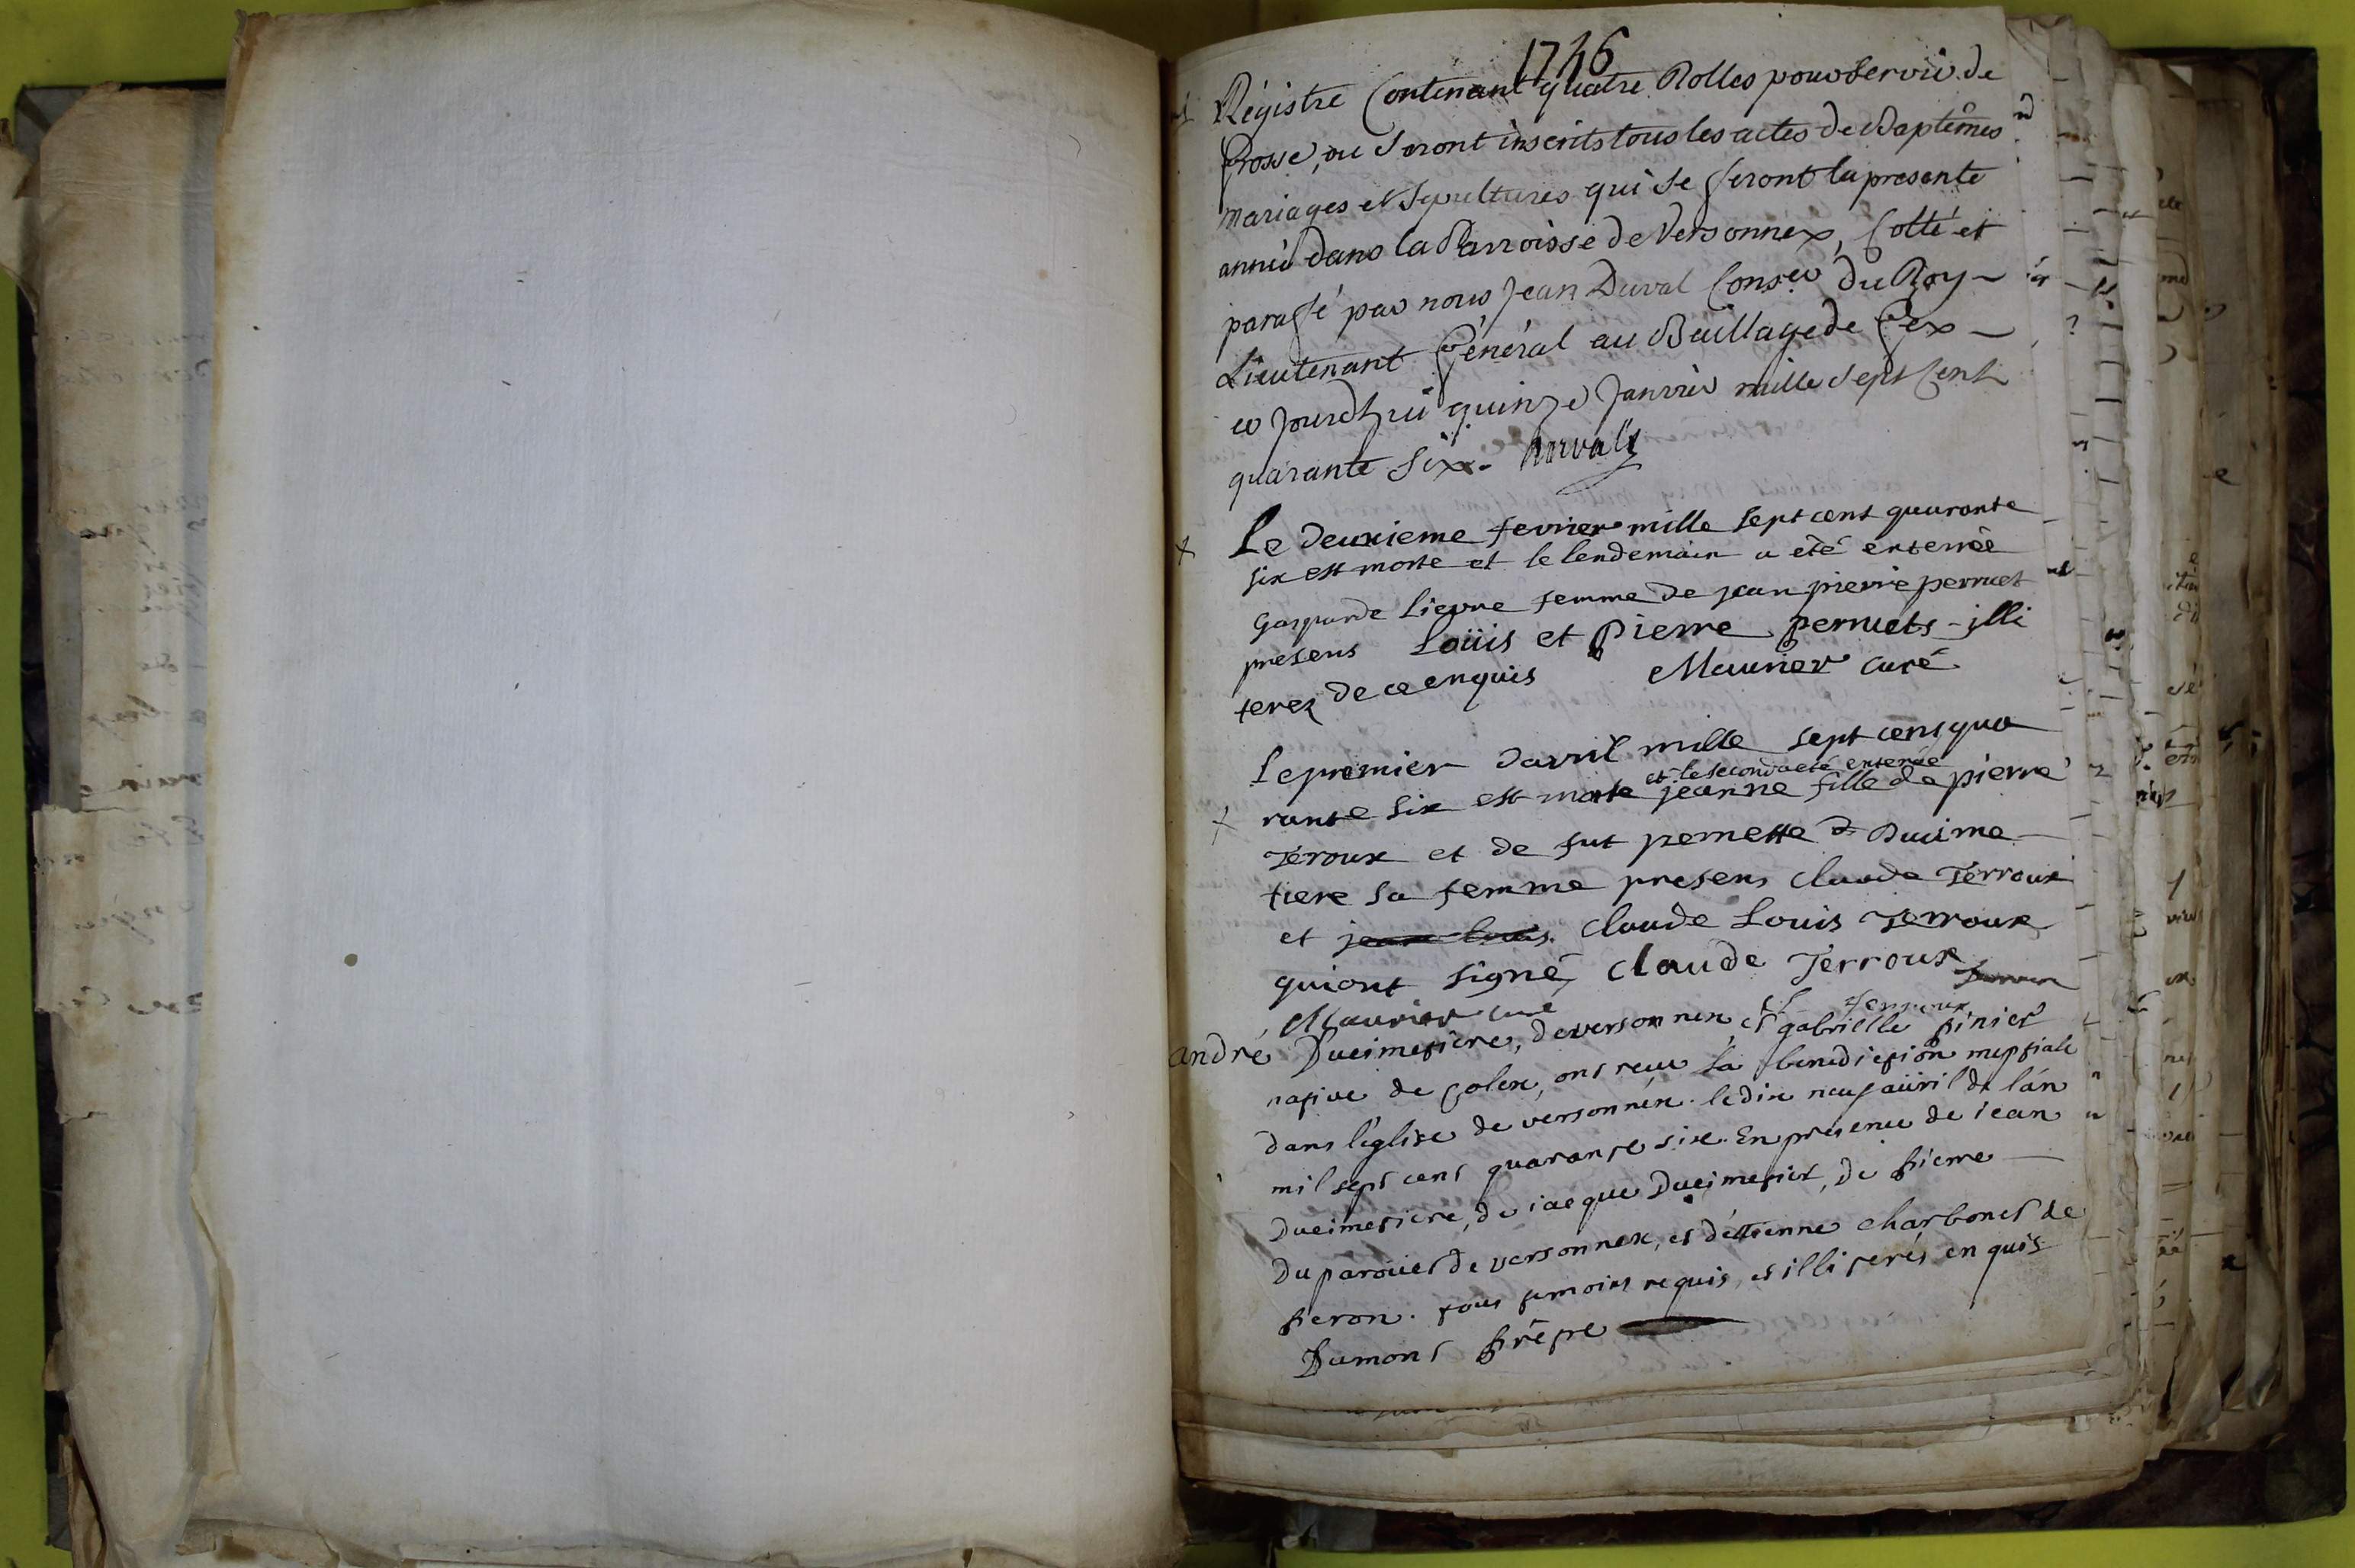 1746
Régistre Contenant quatre Rolles pour servir de
Grosse, ou seront inscrits tous les actes de Baptêmes
mariages et Sepultures qui se feront la presente
année dans la Parroisse de Versonnex, Cotté et
paraffé par nous Jean Duval Conser du Roy
Lieutenant Général au Bailliage de Gex
ce jourdhui quinze Janvier mille sept Cent
quarante Six. Duval
Le deuxieme fevrier mille sept cent quaranta
six est morte et le lendemain a été enterrée
Gasparde Lievre femme de jean pierre perruet
presens Loüis et Pierre perruets illi
terez de ce enquis Maurier curé
le premier davril mille sept cens qua
et le second a été enterrée
rante six est morte jeanne fille de pierre
Terroux et de fut pernette Ducima
tiere sa femme presens claude Terroux
et jean louis claude Louis Terroux
qui ont signé claude Terroux
Maurier curé
Terroux
andré Ducimetiere, de versonnex, et gabrielle pinier
native de Colex, ont reçu la benediction nuptiale
dans l'église de versonnex. le dix neuf avril de l'an
mil sept cent quarante six. En presence de iean
Ducimetiere, de iacque Ducimetier, de pierre
Duparouet de versonnex, et d'étienne charbonet de
peron. tous temoins requis, et illiterés enquis
Dumont prêtre